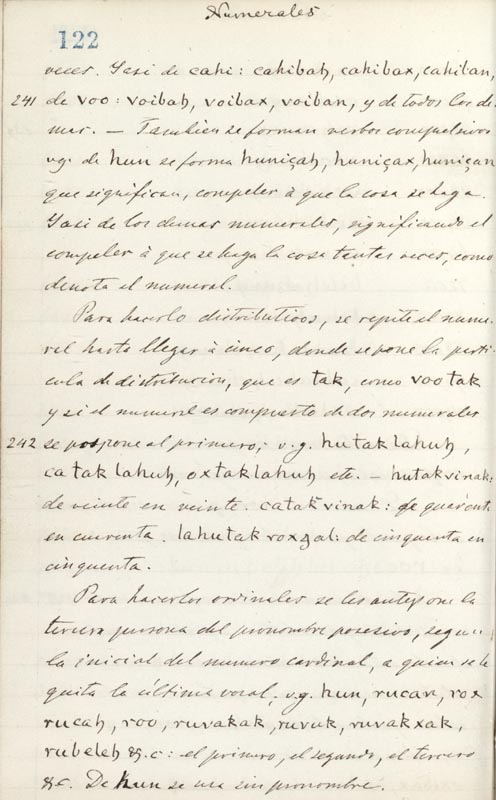 Numerales
122
veces. Y asi de cahi: cahibaɧ, cahibax, cahiban,
241 de voo: voibaɧ, voibax, voiban, y de todos los de
mas. — Tambien se forman verbos compulsivos
vg. de hun se forma huniçaɧ, huniçax, huniçan
que significan, compeler à que la cosa se haga.
Y asi de los demas numerales, significando el
compeler à que se haga la cosa tantas veces, como
denota el numeral.
Para hacerlo distributivos, se repite el nume-
ral hasta llegar à cinco, donde se pone la parti
cula de distribucion, que es tak, como vootak
y si el numeral es compuesto de dos numerales
242 se pospone al primero; v.g. hutaklahuɧ,
cataklahuɧ, oxtaklahuɧ etc. — hutakvinak:
de veinte en veinte. catakvinak: de quarenta
en cuarenta. lahutak roxgal: de cinquenta en
cinquenta.
Para hacerlos ordinales se les antepone la
tercera persona del pronombre posesivo, segun
la inicial del numero cardinal, a quien se le
quita la última vocal; v.g. hun, rucan, rox
rucaɧ, roo, ruvakak, ruvuk, ruvakxak,
rubeleɧ &.c: el primero, el segundo, el tercero
&c. De hun se usa sin pronombre.